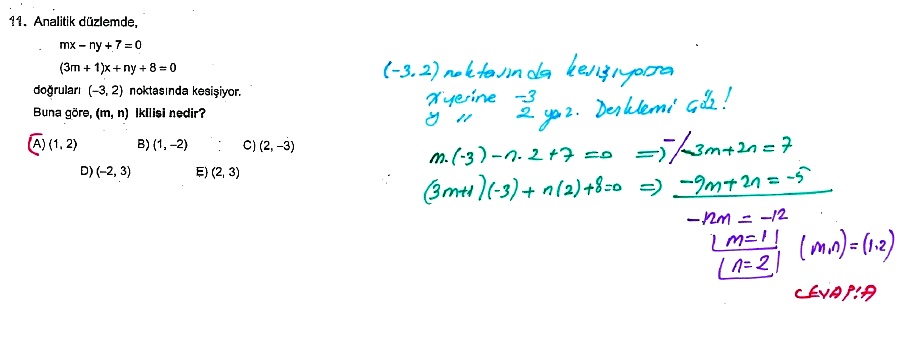 11. Analitik düzlemde,
mx – ny + 7 = 0
(3m + 1)x + ny + 8 = 0
doğruları (–3, 2) noktasında kesişiyor.
Buna göre, (m, n) ikilisi nedir?
A) (1, 2) B) (1, –2) C) (2, –3)
D) (–2, 3) E) (2, 3)
(-3.2) noktasında kesişiyorsa
x yerine -3
y " 2 yaz. Denklemi çöz!
m.(-3) - n.2 + 7 = 0 => -/ -3m + 2n = 7
(3m+1)(-3) + n(2) + 8 = 0 => -9m + 2n = -5
-12m = -12
m = 1
n = 2 (m,n) = (1.2)
CEVAP:A